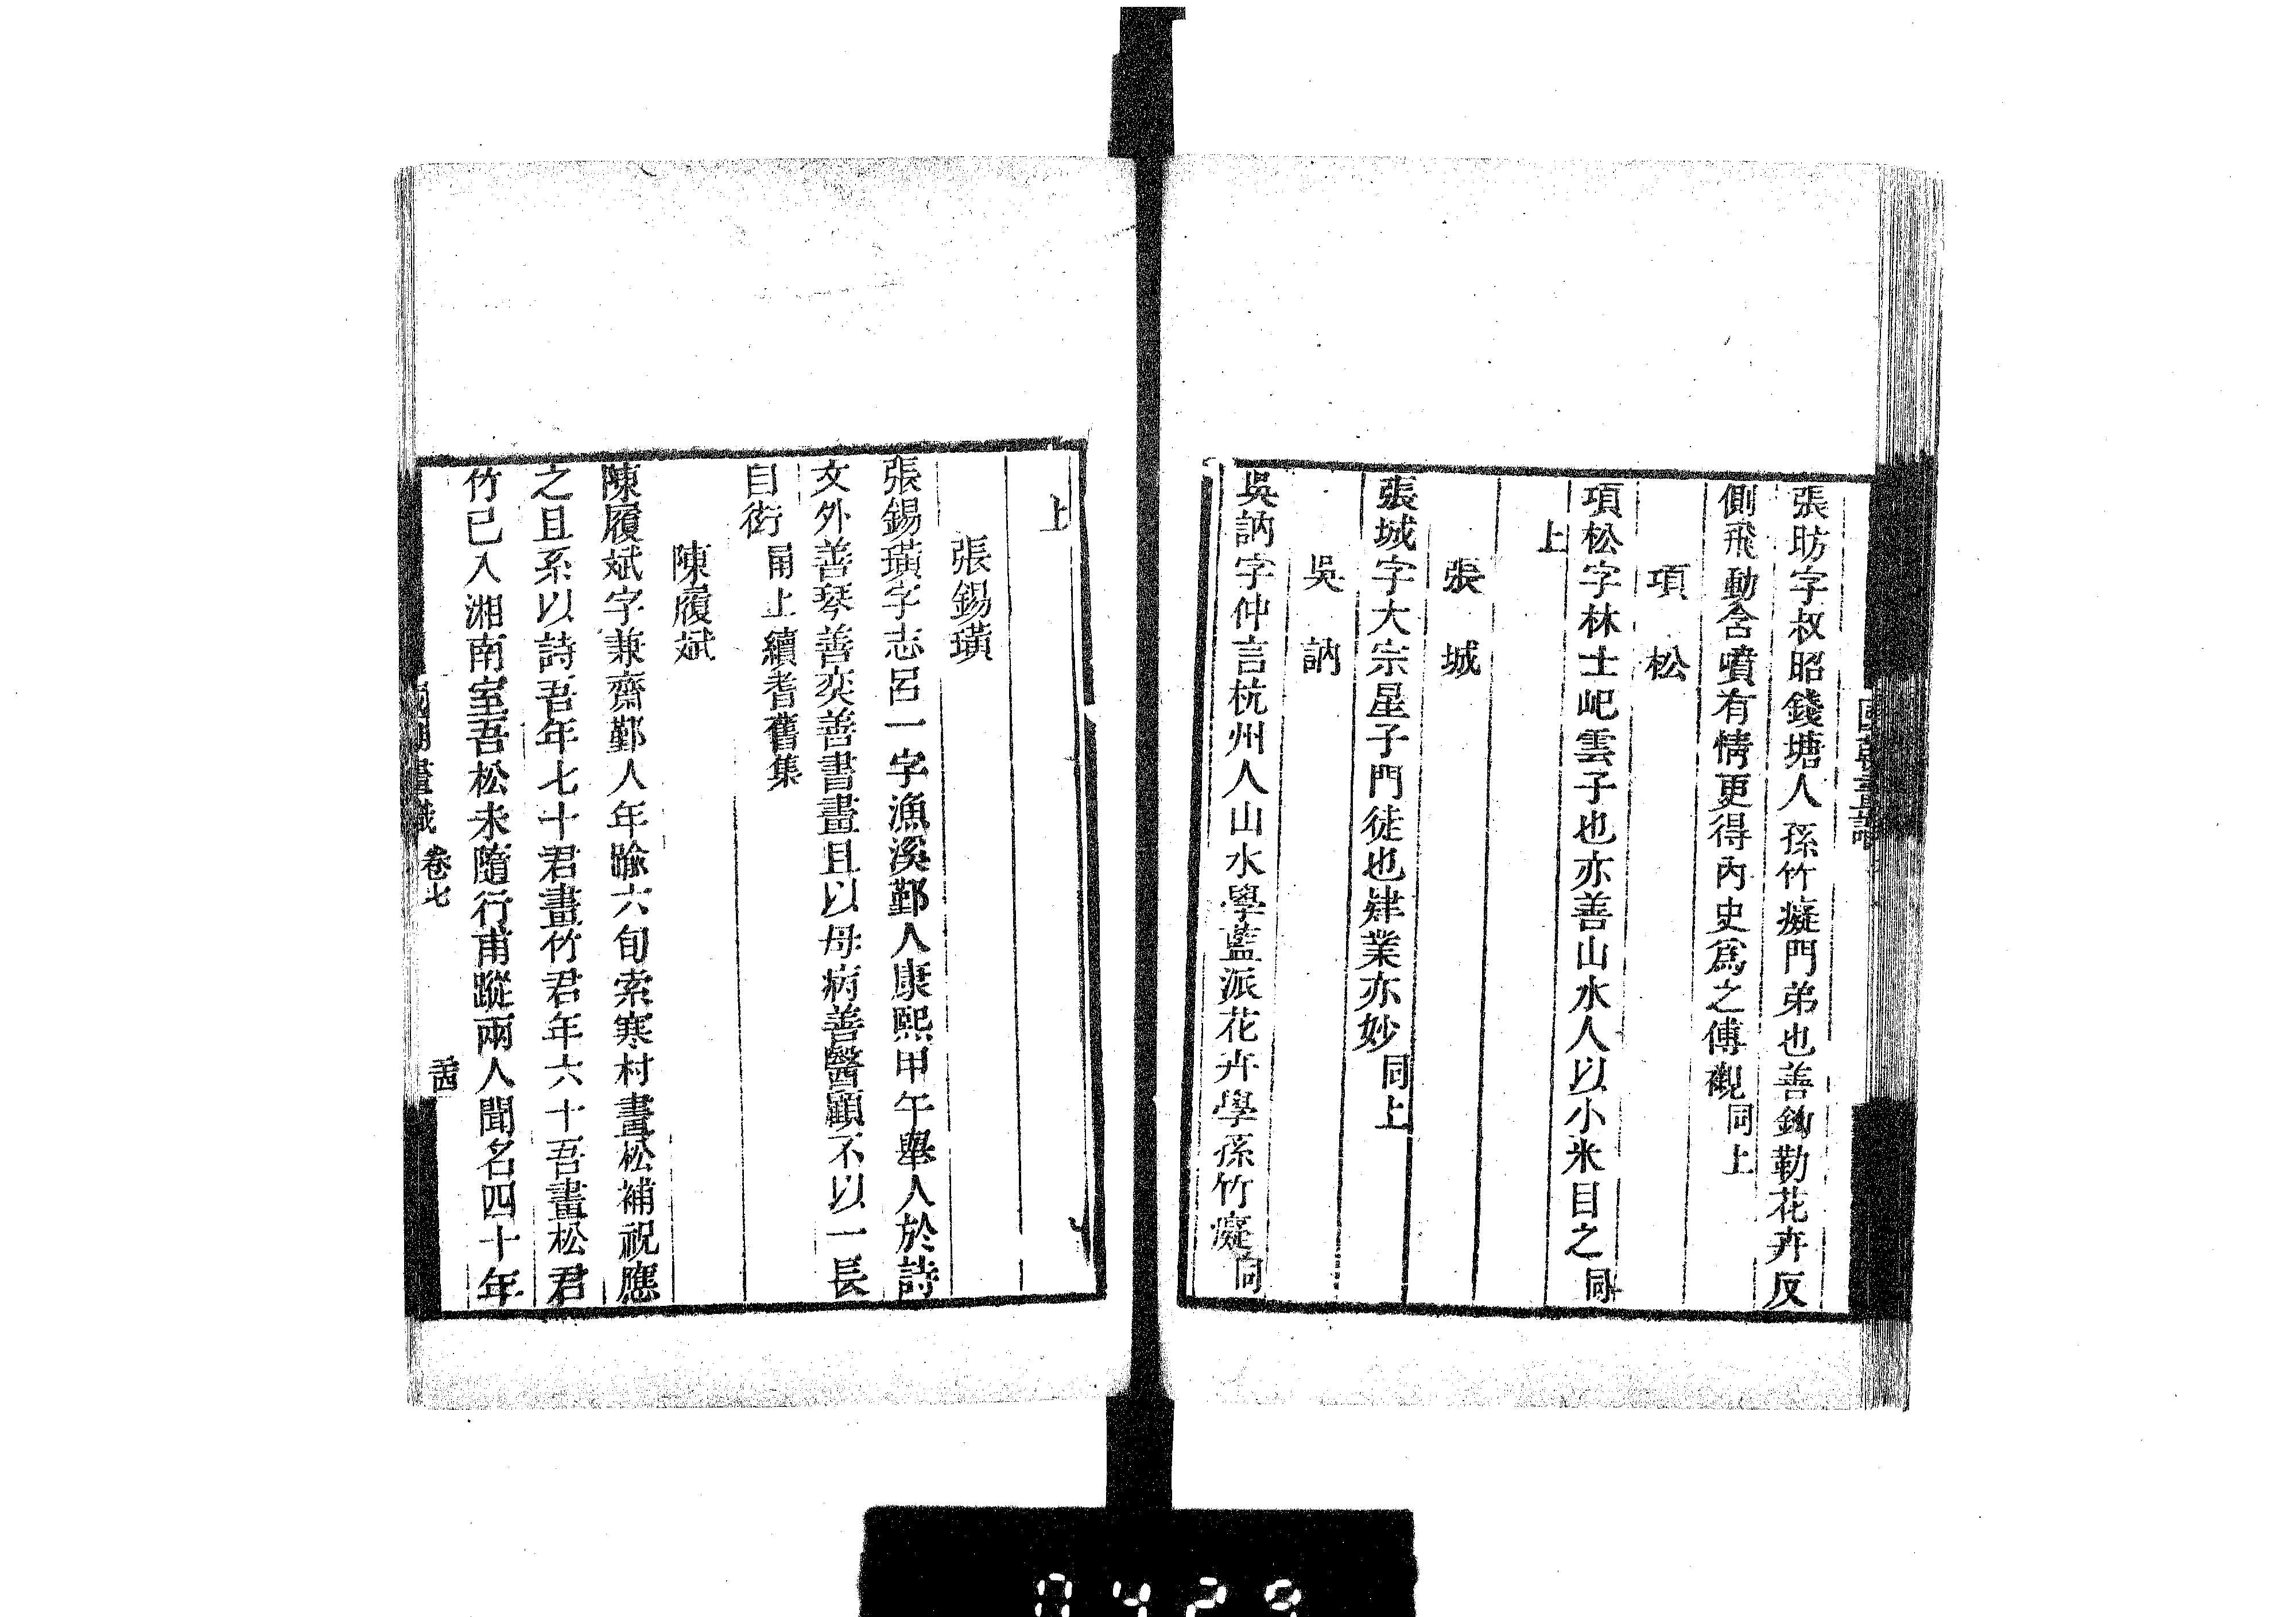 張昉字叔昭錢塘人孫竹癡門弟也善鉤勒花卉反
側飛動含噴有情更得內史爲之傅觀同上
項松
項松字林士屺雲子也亦善山水人以小米目之同
上
張城
張城字大宗星子門徒也肄業亦妙同上
吳訥
吳訥字仲言杭州人山水學藍派花卉學孫竹癡同
上
張錫璜
張錫璜字志呂一字漁溪鄞人康熙甲午舉人於詩
文外善琴善奕善書畫且以母病善醫顧不以一長
自衒甬上續耆舊集
陳履斌
陳履斌字兼齋鄞人年踰六旬索寒村畫松補祝應
之且系以詩吾年七十君畫竹君年六十吾畫松君
竹已入湘南室吾松未隨行甫蹤兩人聞名四十年
國朝畫識 卷七
0429